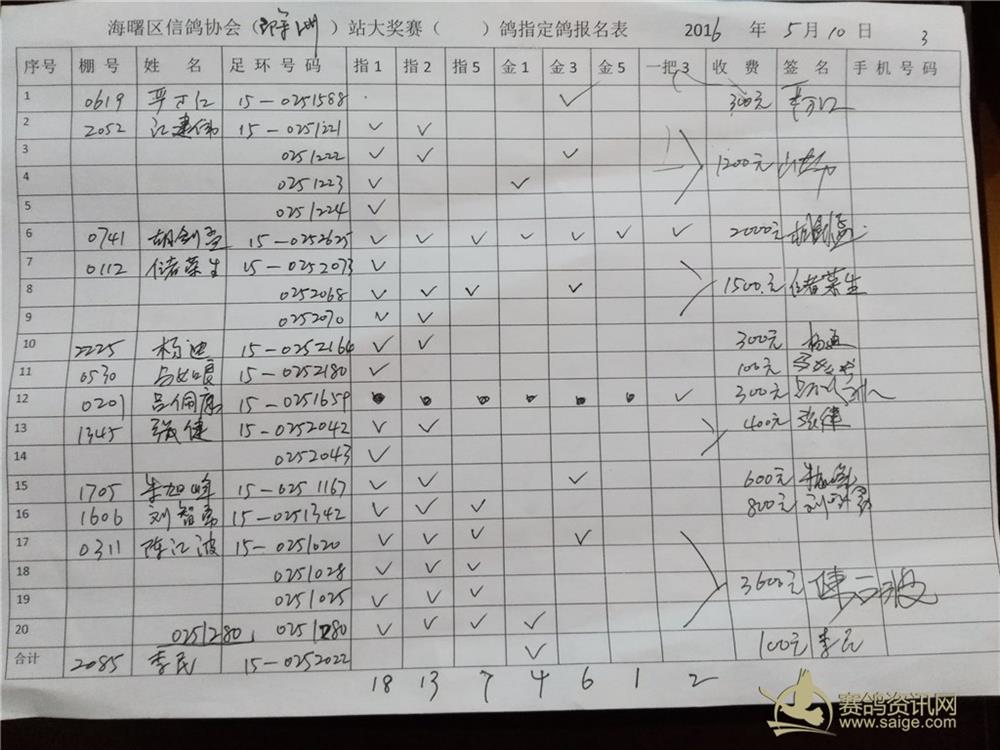 海曙区信鸽协会( )站大奖赛( )鸽指定鸽报名表 2016 年 5月10日 3
序号 棚号 姓名 足环号码 指1 指2 指5 金1 金3 金5 一把3 收费 签名 手机号码
1 0619 15-0251588 ✓ 300元
2 2052 江建伟 15-0251221 ✓ ✓
3 0251222 ✓ ✓ ✓ 1200元
4 0251223 ✓ ✓
5 0251224 ✓
6 0741 15-0252625 ✓ ✓ ✓ ✓ ✓ ✓ ✓ 2000元
7 0112 储荣生 15-0252073 ✓
8 0252068 ✓ ✓ ✓ ✓ 1500.元 储荣生
9 0252070 ✓ ✓
10 2225 杨迪 15-0252164 ✓ ✓ 300元 杨迪
11 0530 15-0252180 ✓ 100元
12 0201 15-0251659 ✓ 300元
13 1345 张健 15-0252042 ✓ ✓ 400元 张健
14 0252043 ✓
15 1705 朱旭峰 15-0251167 ✓ ✓ ✓ 600元 朱旭峰
16 1606 刘智 15-0251342 ✓ ✓ ✓ 800元
17 0311 陈江波 15-0251020 ✓ ✓ ✓ ✓
18 0251028 ✓ ✓ ✓ 3600元
19 0251025 ✓ ✓ ✓
20 0251280, 0251280 ✓ ✓ ✓ ✓
合计 2085 李民 15-0252022 ✓ 100元 李民
18 13 7 4 6 1 2
赛鸽资讯网
www.saige.com